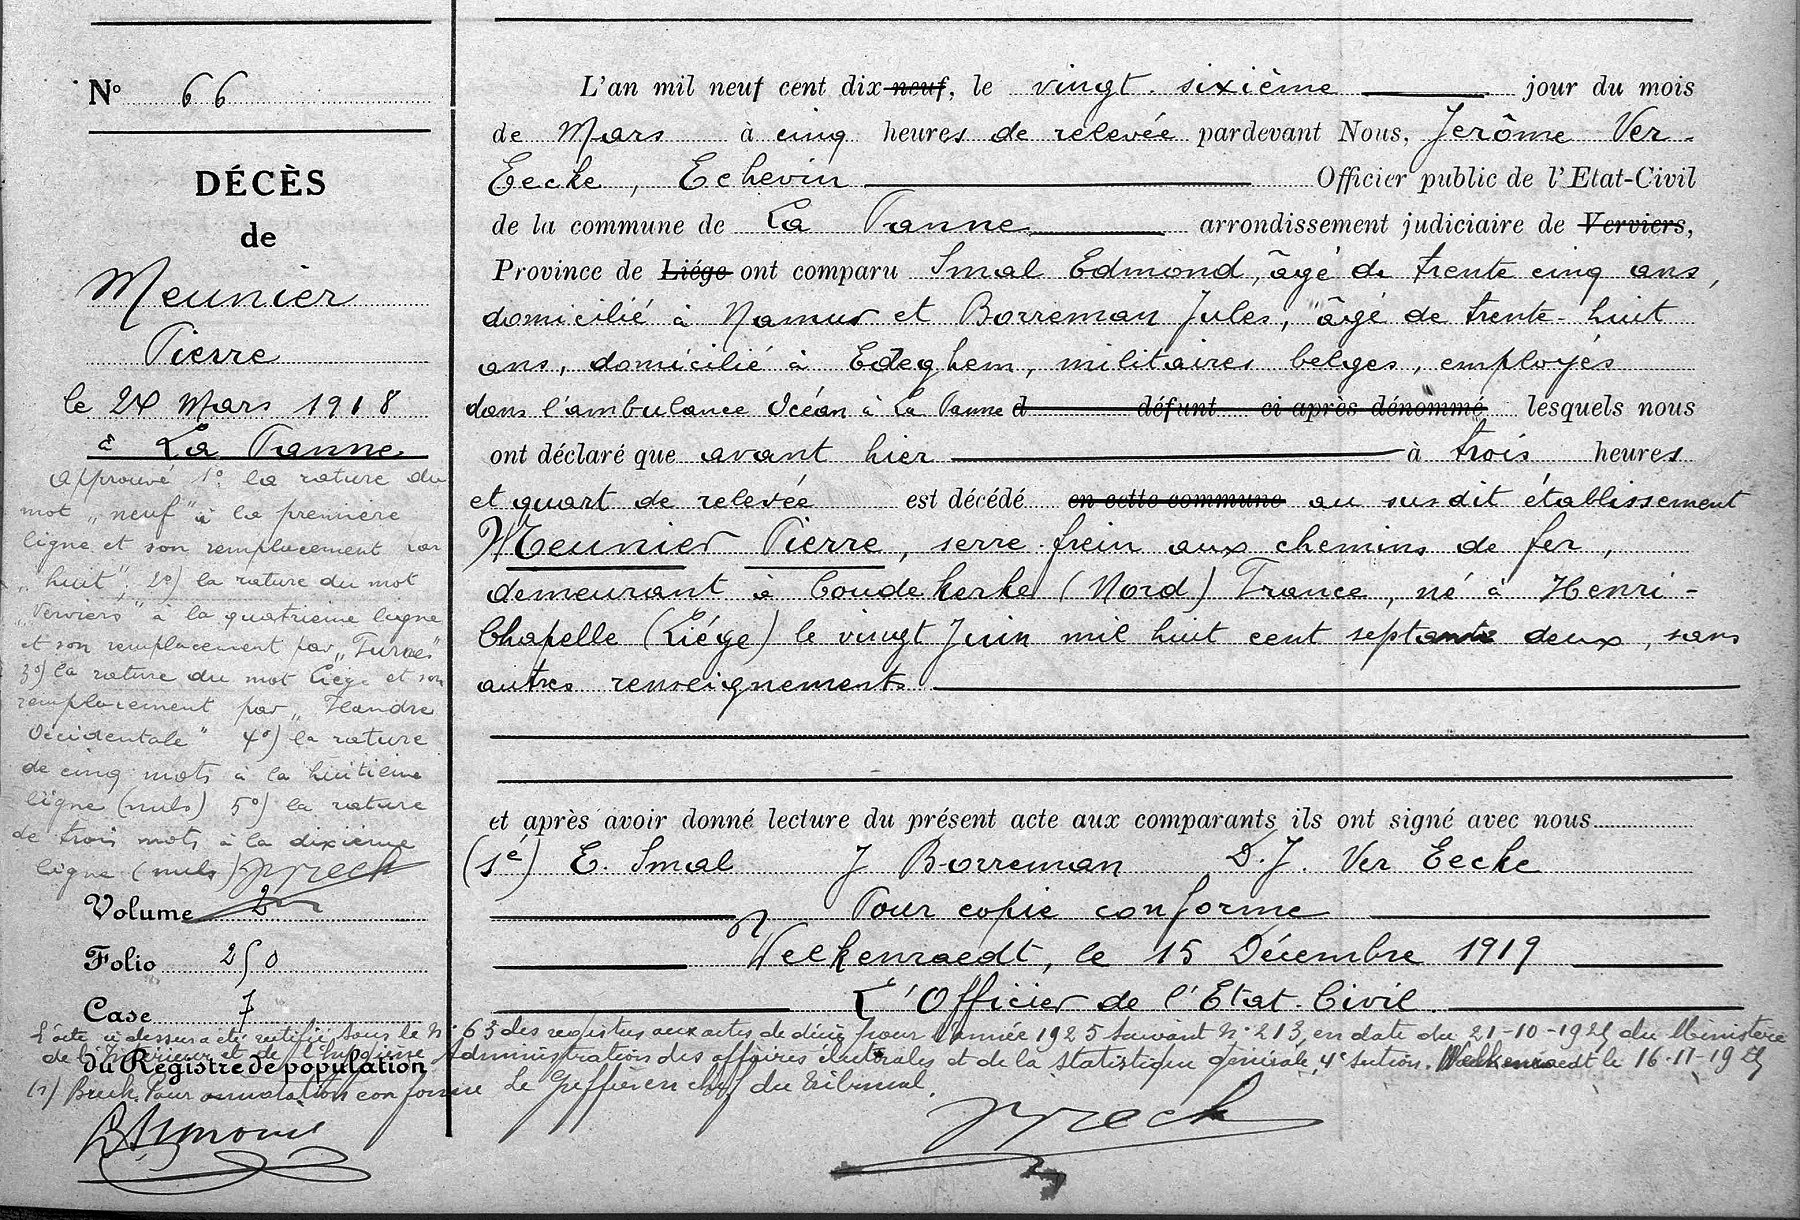 N° 66
DÉCÈS
de
Meunier
Pierre
le 24 Mars 1918
à La Panne
Approuvé 1° la rature du
mot „neuf" à la première
ligne et son remplacement par
„huit", 2°) la rature du mot
„Verviers" à la quatrième ligne
et son remplacement par „Furnes"
3°) la rature du mot Liège et son
remplacement par „Flandre
Occidentale" 4°) la rature
de cinq mots à la huitième
ligne (nuls) 5°) la rature
de trois mots à la dixième
ligne (nuls)
Volume 2
Folio 250
Case 7
du Registre de population
L'an mil neuf cent dix neuf, le vingt-sixième jour du mois
de Mars à cinq heures de relevée pardevant Nous, Jerôme Ver-
Eecke, Echevin Officier public de l'Etat-Civil
de la commune de La Panne arrondissement judiciaire de Verviers,
Province de Liége ont comparu Smal Edmond, âgé de trente cinq ans,
domicilié à Namur et Borreman Jules, âgé de trente-huit
ans, domicilié à Edeghem, militaires belges, employés
dans l'ambulance Océan à La Panne d défunt ci-après dénommé lesquels nous
ont déclaré que avant hier à trois heures
et quart de relevée est décédé en cette commune au susdit établissement
Meunier Pierre, serre-frein aux chemins de fer,
demeurant à Coudekerke (Nord) France, né à Henri-
Chapelle (Liége) le vingt Juin mil huit cent septante deux, sans
autres renseignements
et après avoir donné lecture du présent acte aux comparants ils ont signé avec nous
(sé) E. Smal J Borreman D.J. Ver Eecke
Pour copie conforme
Welkenraedt, le 15 Décembre 1919
L'Officier de l'Etat-Civil
L'acte ci dessus a été rectifié sous le N° 63 des registres aux actes de décès pour l'année 1925 suivant n° 213, en date du 21-10-1925 du Ministère
de l'Intérieur et de l'hygiène Administration des affaires électorales et de la statistique générale, 4e section. Welkenraedt le 16-11-1925
(s) Bruck. Pour annotation conforme Le Greffier en chef du tribunal.